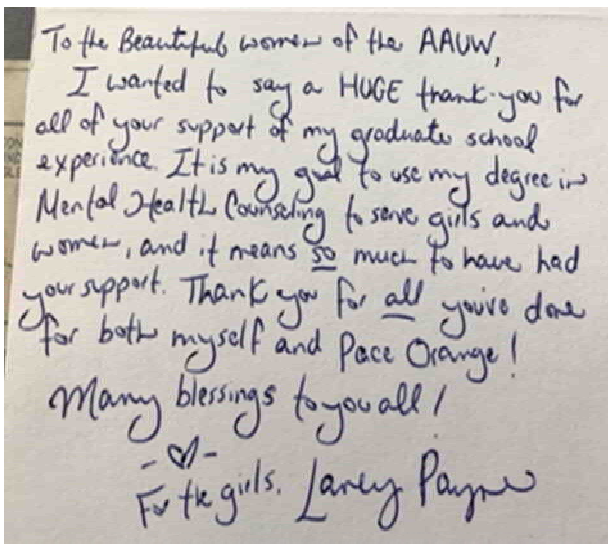 To the Beautiful women of the AAUW,
I wanted to say a HUGE thank-you for
all of your support of my graduate school
experience. It is my goal to use my degree in
Mental Health Counseling to serve girls and
women, and it means so much to have had
your support. Thank you for all you've done
for both myself and Pace Orange!
Many blessings to you all!
-♡-
For the girls, Laney Payne